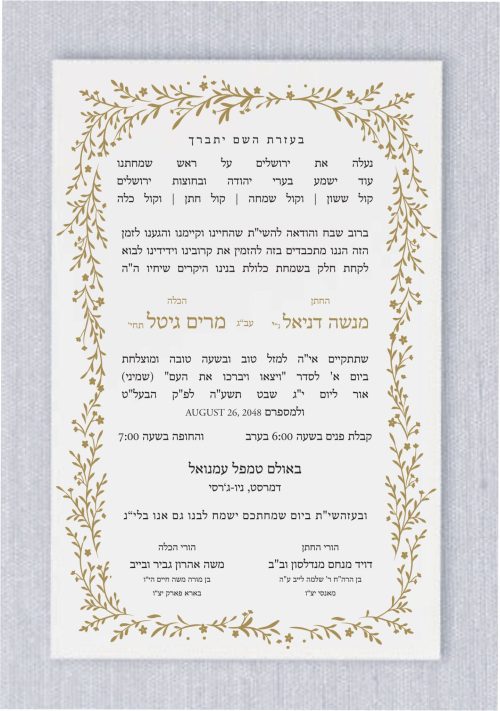 בעזרת השם יתברך
נעלה את ירושלים על ראש שמחתנו
עוד ישמע בערי יהודה ובחוצות ירושלים
קול ששון | וקול שמחה | קול חתן | וקול כלה
ברוב שבח והודאה להשי"ת שהחיינו וקיימנו והגענו לזמן
הזה הננו מתכבדים בזה להזמין את קרובינו וידידינו לבוא
לקחת חלק בשמחת כלולת בנינו היקרים שיחיו ה"ה
החתן הכלה
מנשה דניאל ני" עב"ג מרים גיטל תחי'
שתתקיים אי"ה למזל טוב ובשעה טובה ומוצלחת
ביום א' לסדר "ויצאו ויברכו את העם" (שמיני)
אור ליום י"ג שבט תשע"ה לפ"ק הבעל"ט
ולמספרם AUGUST 26, 2048
קבלת פנים בשעה 6:00 בערב והחופה בשעה 7:00
באולם טמפל עמנואל
דמרסט, ניו-ג'רסי
ובעזהשי"ת ביום שמחתכם ישמח לבנו גם אנו בלי"נ
הורי החתן הורי הכלה
דויד מנחם מנדלסון וב"ב משה אהרון גביר ובייב
בן הרה"ח ר' שלמה לייב ע"ה בן מורה משה חיים הי"ו
מאנסי יצ"ו בארא פארק יצ"ו